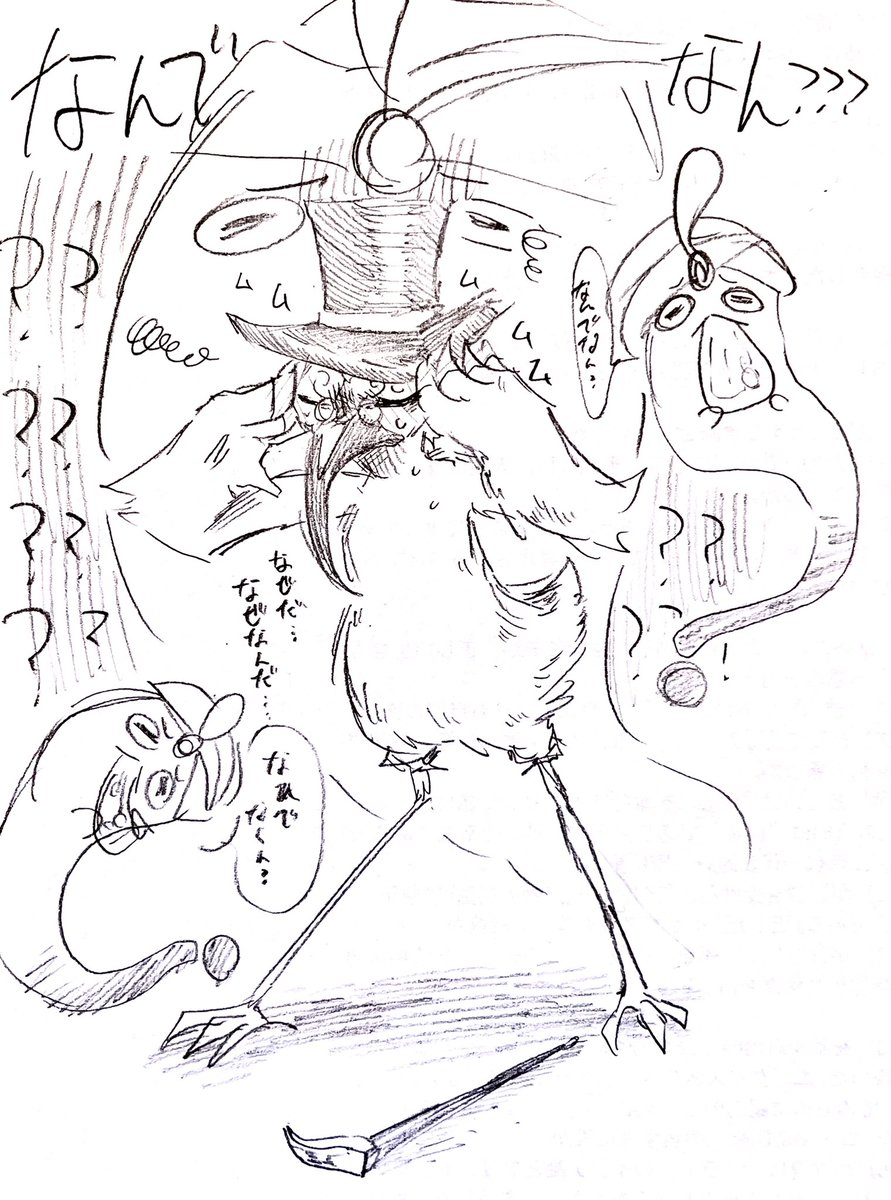 なんで
なん???
??
ムム
ム
ム
なんでなん?
??
??
??
??
??!
なぜだ…
なぜなんだ…
なんで
なん?